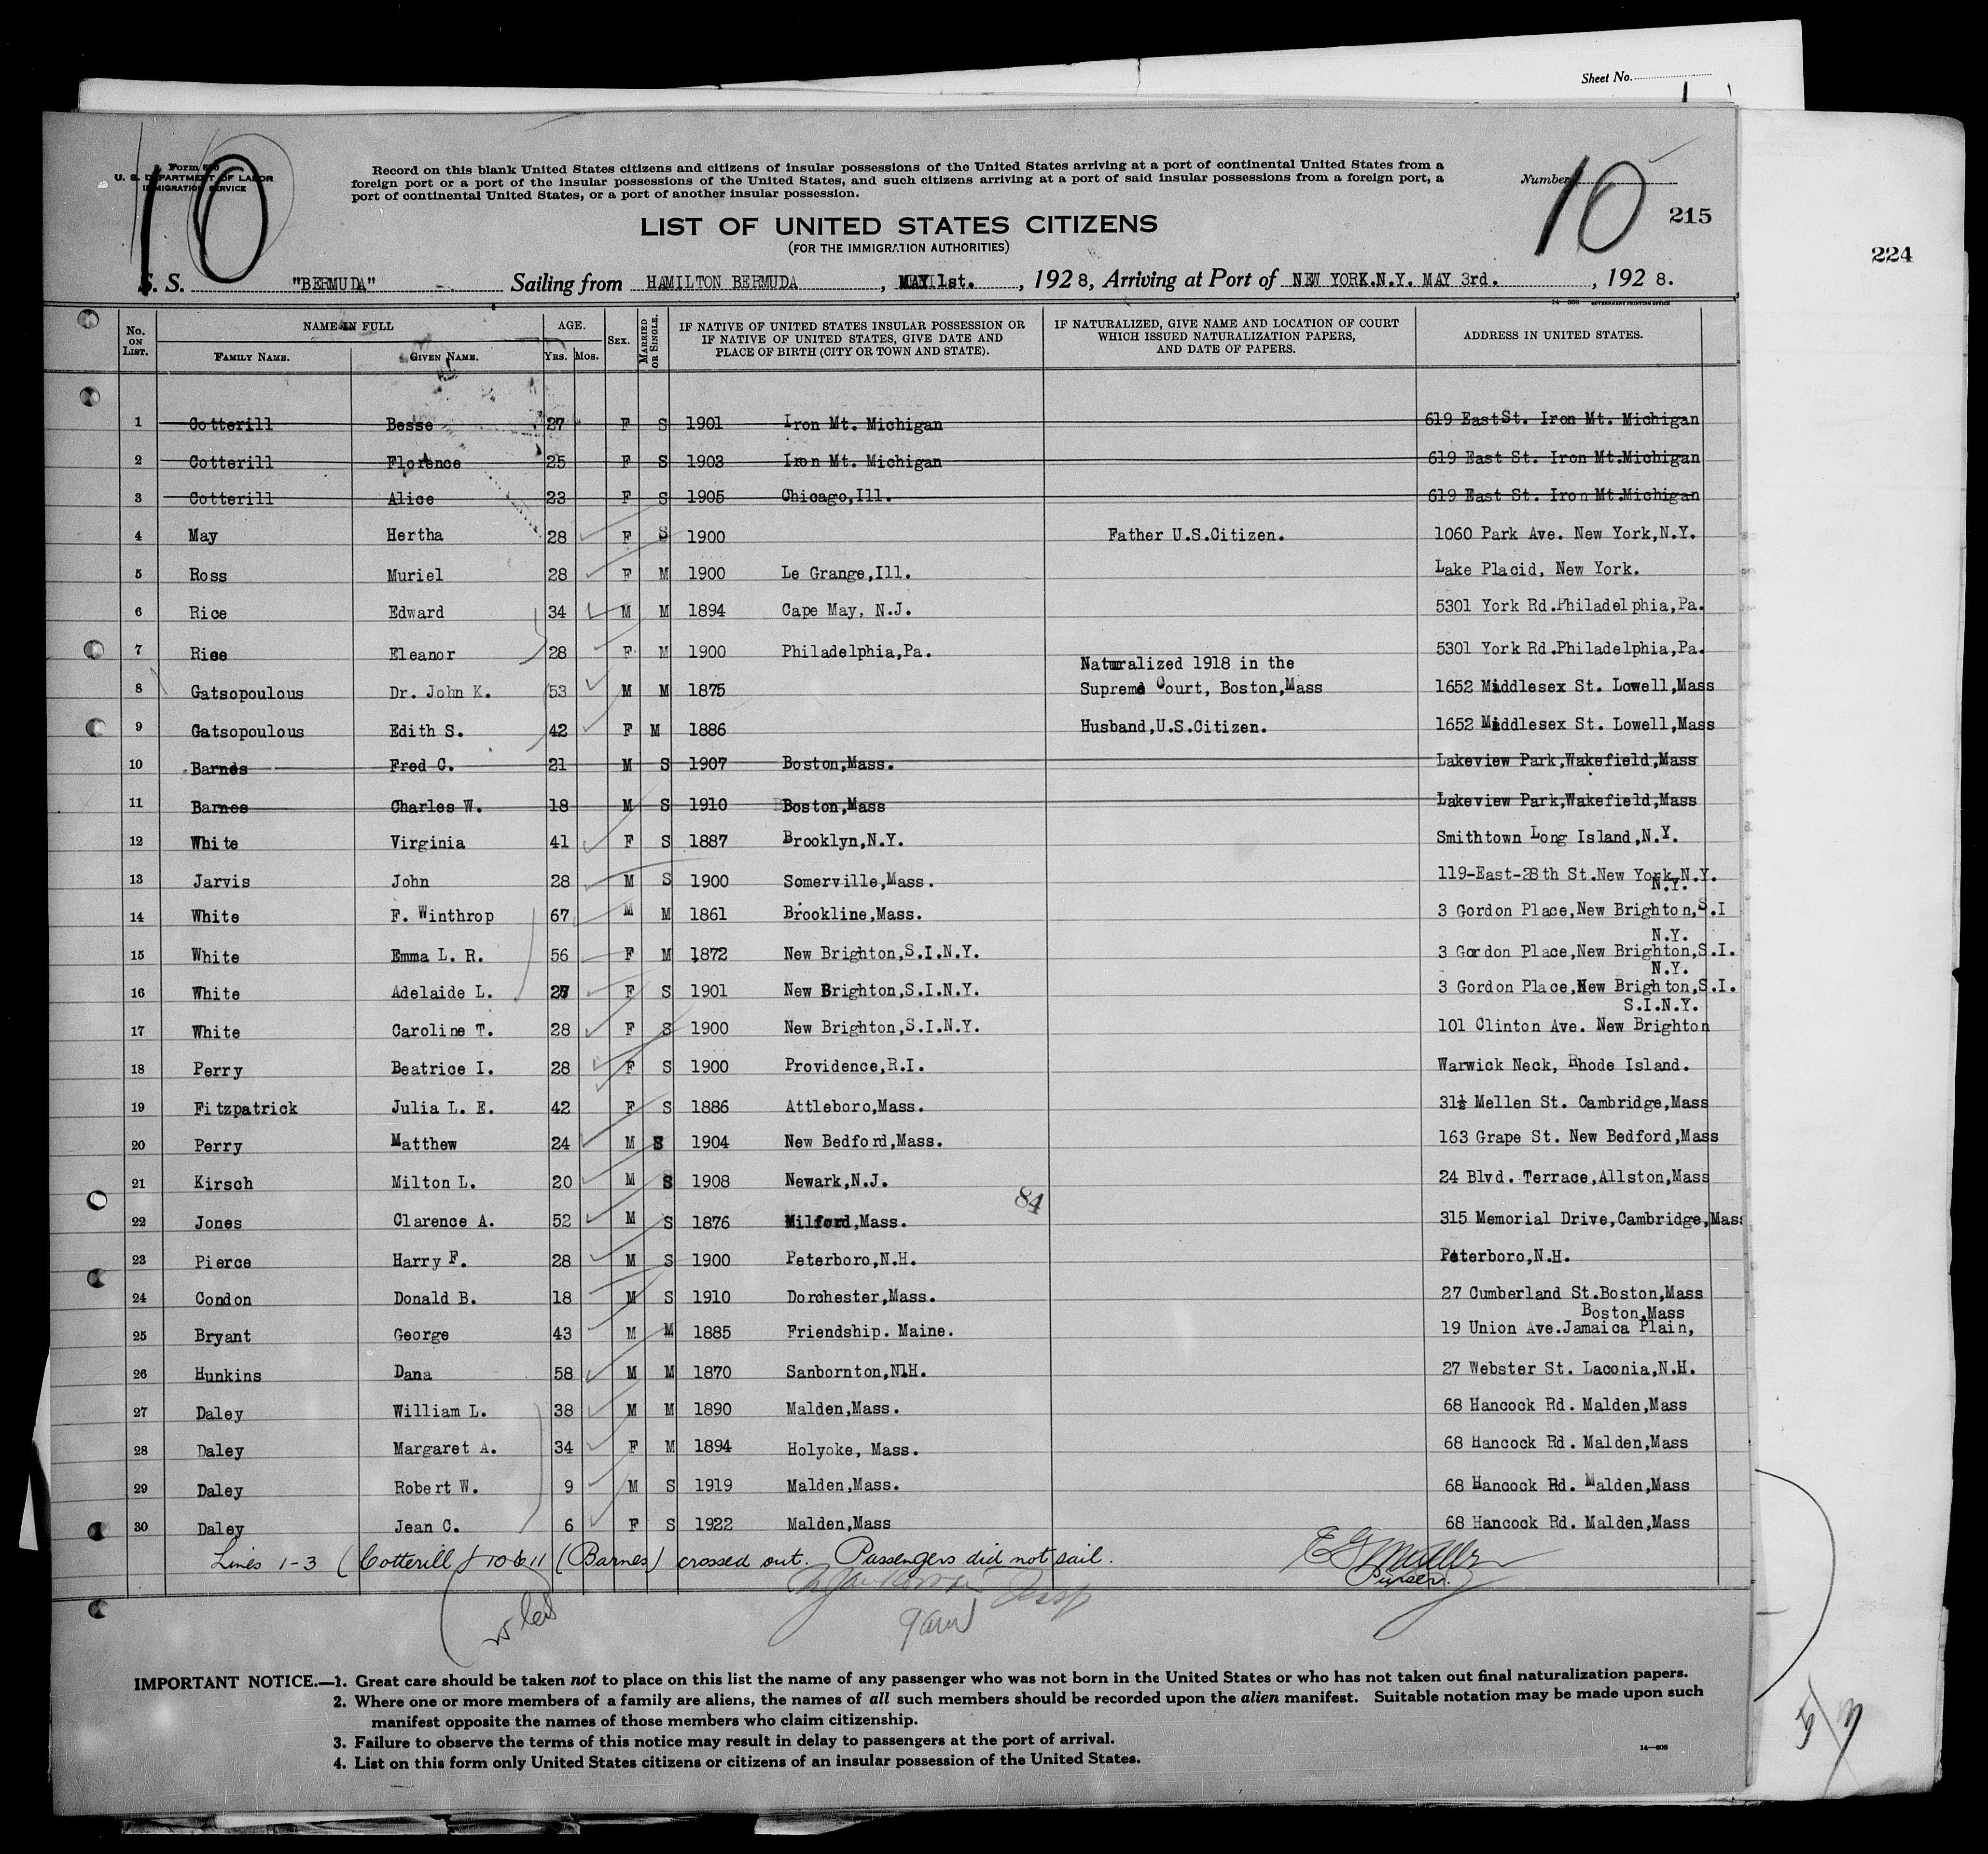 Sheet No.
10
Form 630
U. S. DEPARTMENT OF LABOR
IMMIGRATION SERVICE
Record on this blank United States citizens and citizens of insular possessions of the United States arriving at a port of continental United States from a
foreign port or a port of the insular possessions of the United States, and such citizens arriving at a port of said insular possessions from a foreign port, a
port of continental United States, or a port of another insular possession.
Number
10
215
224
LIST OF UNITED STATES CITIZENS
(FOR THE IMMIGRATION AUTHORITIES)
S. S. "BERMUDA" Sailing from HAMILTON BERMUDA, MAY 1st., 1928, Arriving at Port of NEW YORK.N.Y. MAY 3rd., 1928.
14—608 GOVERNMENT PRINTING OFFICE
No. ON LIST. NAME IN FULL FAMILY NAME. GIVEN NAME. AGE. YRS. MOS. SEX. MARRIED OR SINGLE. IF NATIVE OF UNITED STATES INSULAR POSSESSION OR IF NATIVE OF UNITED STATES, GIVE DATE AND PLACE OF BIRTH (CITY OR TOWN AND STATE). IF NATURALIZED, GIVE NAME AND LOCATION OF COURT WHICH ISSUED NATURALIZATION PAPERS, AND DATE OF PAPERS. ADDRESS IN UNITED STATES.
1 Cotterill Besse 27 F S 1901 Iron Mt. Michigan 619 East St. Iron Mt. Michigan
2 Cotterill Florence 25 F S 1903 Iron Mt. Michigan 619 East St. Iron Mt.Michigan
3 Cotterill Alice 23 F S 1905 Chicago,Ill. 619 East St. Iron Mt.Michigan
4 May Hertha 28 F S 1900 Father U.S.Citizen. 1060 Park Ave. New York,N.Y.
5 Ross Muriel 28 F M 1900 Le Grange,Ill. Lake Placid, New York.
6 Rice Edward 34 M M 1894 Cape May, N.J. 5301 York Rd.Philadelphia,Pa.
7 Rice Eleanor 28 F M 1900 Philadelphia,Pa. 5301 York Rd.Philadelphia,Pa.
Naturalized 1918 in the
8 Gatsopoulous Dr. John K. 53 M M 1875 Supreme Court, Boston,Mass 1652 Middlesex St. Lowell,Mass
9 Gatsopoulous Edith S. 42 F M 1886 Husband,U.S.Citizen. 1652 Middlesex St. Lowell,Mass
10 Barnes Fred C. 21 M S 1907 Boston,Mass. Lakeview Park,Wakefield,Mass
11 Barnes Charles W. 18 M S 1910 Boston,Mass Lakeview Park,Wakefield,Mass
12 White Virginia 41 F S 1887 Brooklyn,N.Y. Smithtown Long Island,N.Y.
13 Jarvis John 28 M S 1900 Somerville,Mass. 119-East-28th St.New York,N.Y.
N.Y.
14 White F. Winthrop 67 M M 1861 Brookline,Mass. 3 Gordon Place,New Brighton,S.I
N.Y.
15 White Emma L. R. 56 F M 1872 New Brighton,S.I.N.Y. 3 Gordon Place,New Brighton,S.I.
N.Y.
16 White Adelaide L. 27 F S 1901 New Brighton,S.I.N.Y. 3 Gordon Place,New Brighton,S.I.
S.I.N.Y.
17 White Caroline T. 28 F S 1900 New Brighton,S.I.N.Y. 101 Clinton Ave. New Brighton
18 Perry Beatrice I. 28 F S 1900 Providence,R.I. Warwick Neck, Rhode Island.
19 Fitzpatrick Julia L. E. 42 F S 1886 Attleboro,Mass. 31½ Mellen St. Cambridge,Mass
20 Perry Matthew 24 M S 1904 New Bedford,Mass. 163 Grape St. New Bedford,Mass
21 Kirsch Milton L. 20 M S 1908 Newark,N.J. 24 Blvd. Terrace,Allston,Mass
84
22 Jones Clarence A. 52 M S 1876 Milford,Mass. 315 Memorial Drive,Cambridge,Mass
23 Pierce Harry F. 28 M S 1900 Peterboro,N.H. Peterboro,N.H.
24 Condon Donald B. 18 M S 1910 Dorchester,Mass. 27 Cumberland St.Boston,Mass
Boston,Mass
25 Bryant George 43 M M 1885 Friendship. Maine. 19 Union Ave.Jamaica Plain,
26 Hunkins Dana 58 M M 1870 Sanbornton,N.H. 27 Webster St. Laconia,N.H.
27 Daley William L. 38 M M 1890 Malden,Mass. 68 Hancock Rd. Malden,Mass
28 Daley Margaret A. 34 F M 1894 Holyoke, Mass. 68 Hancock Rd. Malden,Mass
29 Daley Robert W. 9 M S 1919 Malden,Mass. 68 Hancock Rd. Malden,Mass
30 Daley Jean C. 6 F S 1922 Malden,Mass 68 Hancock Rd. Malden,Mass
Lines 1-3 (Cotterill) 10 & 11 (Barnes) crossed out. Passengers did not sail.
Purser.
IMPORTANT NOTICE.—1. Great care should be taken not to place on this list the name of any passenger who was not born in the United States or who has not taken out final naturalization papers.
2. Where one or more members of a family are aliens, the names of all such members should be recorded upon the alien manifest. Suitable notation may be made upon such
manifest opposite the names of those members who claim citizenship.
3. Failure to observe the terms of this notice may result in delay to passengers at the port of arrival.
4. List on this form only United States citizens or citizens of an insular possession of the United States.
14—608